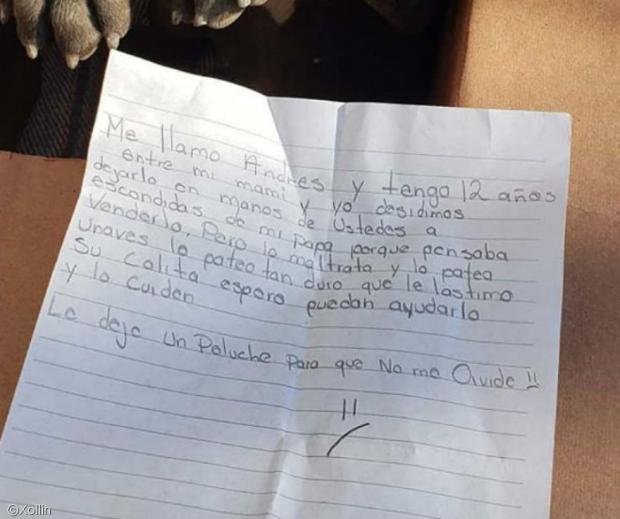 Me llamo Andres y tengo 12 años
entre mi mami y yo desidimos
dejarlo en manos de Ustedes a
escondidas de mi Papa porque pensaba
Venderlo, Pero lo maltrata y lo patea
Unaves lo pateo tan duro que le lastimo
Su Colita espero puedan ayudarlo
y lo Cuiden
Le dejo Un Peluche Para que No me Olvide !!
©Xollin